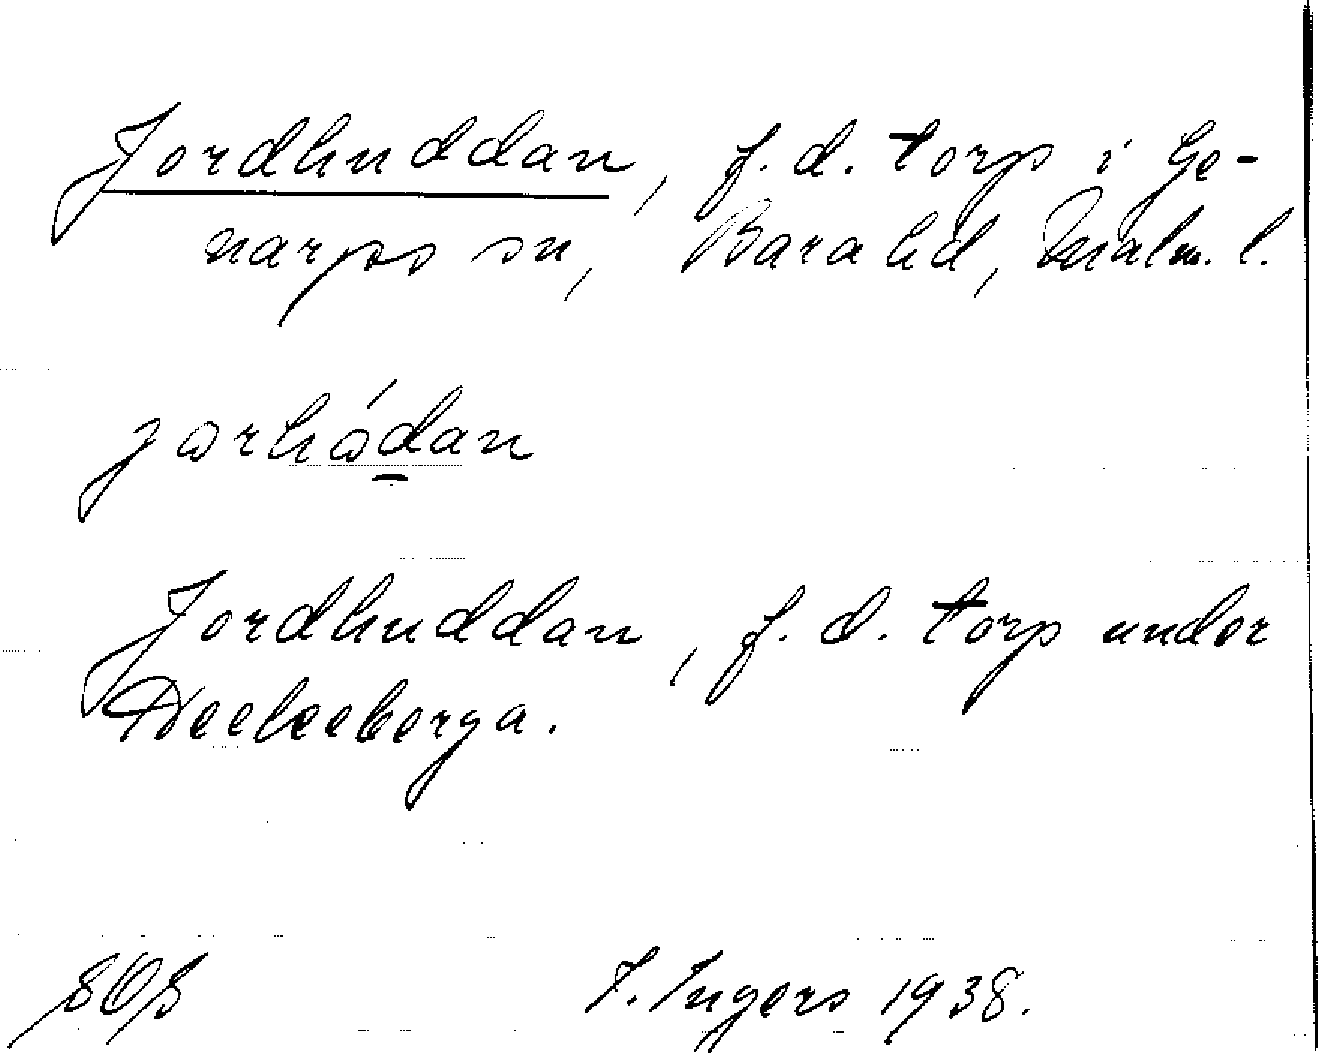 Jordhuddan, f.d. torp i Ge-
narps sn, Bara hd, Malm. l.
jorhódan
Jordhuddan, f.d. torp under
Heckeberga.
I. Ingers 1938.